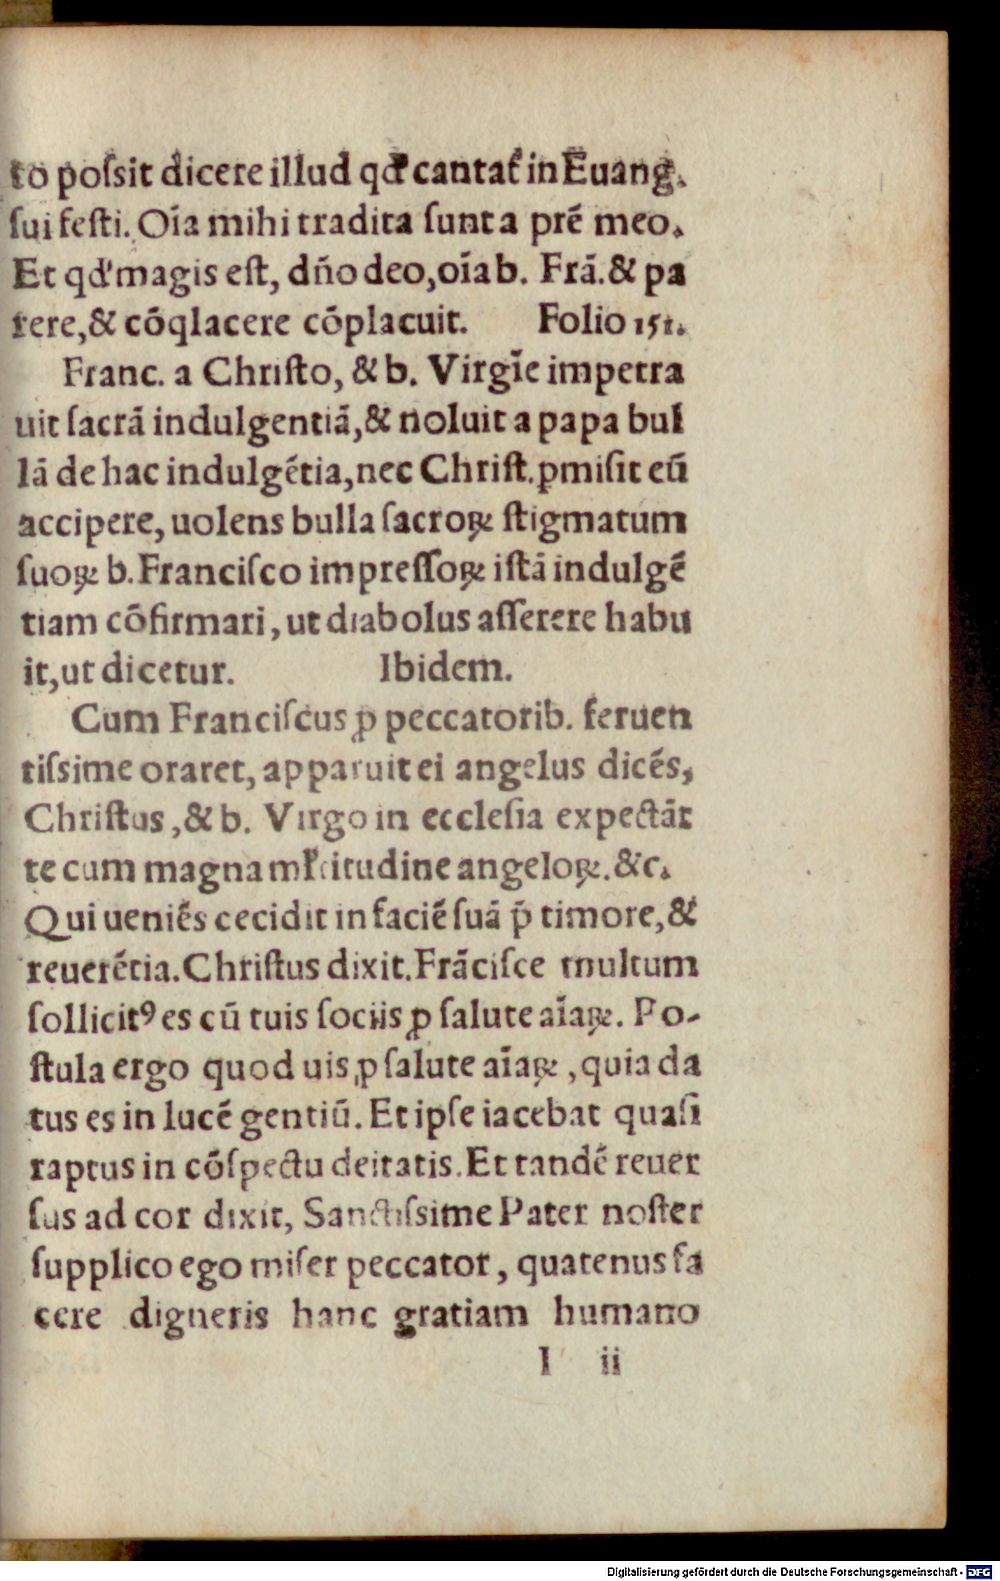 to poſsit dicere illud qđ cantat᷑ in Euang.
ſui feſti. Oīa mihi tradita ſunt a prē meo.
Et qđ magis eſt, dn̄o deo, oīa b. Frā. & pa
rere, & cōqlacere cōplacuit. Folio 151.
Franc. a Chriſto, & b. Virgīe impetra
uit ſacrā indulgentiā, & noluit a papa bul
lā de hac indulgētia, nec Chriſt. ꝑmiſit eū
accipere, uolens bulla ſacroꝝ ſtigmatum
ſuoꝝ b. Franciſco impreſſoꝝ iſtā indulgē
tiam cōfirmari, ut diabolus aſſerere habu
it, ut dicetur. Ibidem.
Cum Franciſcus ꝓ peccatorib. feruen
tiſsime oraret, apparuit ei angelus dicēs,
Chriſtus, & b. Virgo in eccleſia expectāt
te cum magna ml̓titudine angeloꝝ. &c.
Qui ueniēs cecidit in faciē ſuā p̄ timore, &
reuerētia. Chriſtus dixit. Frāciſce multum
ſollicitꝰ es cū tuis ſociis ꝓ ſalute aīaꝝ. Po-
ſtula ergo quod uis ꝓ ſalute aīaꝝ, quia da
tus es in lucē gentiū. Et ipſe iacebat quaſi
raptus in cōſpectu deitatis. Et tandē reuer
ſus ad cor dixit, Sanctiſsime Pater noſter
ſupplico ego miſer peccator, quatenus fa
cere digneris hanc gratiam humano
I ii
Digitalisierung gefördert durch die Deutsche Forschungsgemeinschaft - DFG